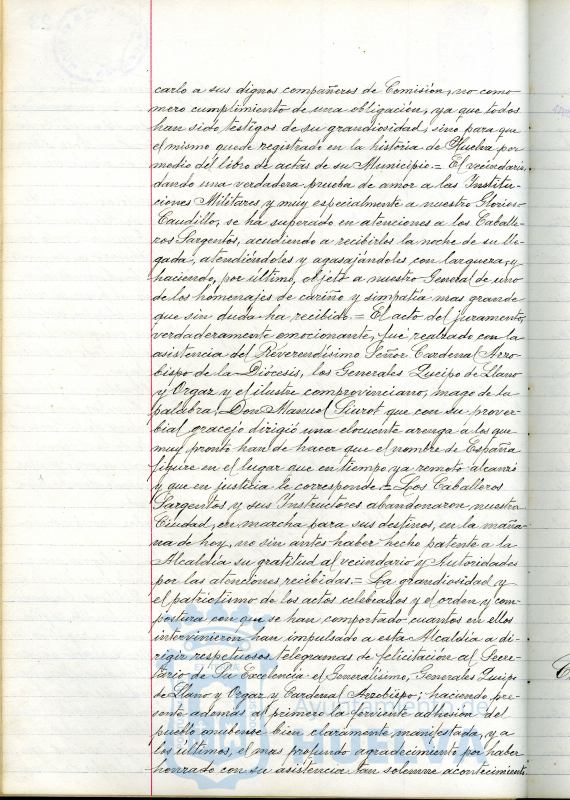 carlo a sus dignos compañeros de Comisión, no como
mero cumplimiento de una obligación, ya que todos
han sido testigos de su grandiosidad, sino para que
el mismo quede registrado en la historia de Huelva por
medio del libro de actas de su Municipio.= El vecindario,
dando una verdadera prueba de amor a las Institu-
ciones Militares y muy especialmente a nuestro Glorioso
Caudillo, se ha superado en atenciones a los Caballe-
ros Sargentos, acudiendo a recibirlos la noche de su lle-
gada, atendiéndoles y agasajándoles con larguera, y
haciendo, por último, objeto a nuestro General de uno
de los homenajes de cariño y simpatía mas grande
que sin duda ha recibido.= El acto del juramento,
verdaderamente emocionante, fué realzado con la
asistencia del Reverendísimo Señor Cardenal Arzo-
bispo de la Diócesis, los Generales Queipo de Llano
y Orgaz y el ilustre comprovinciano, mago de la
palabra, Don Manuel Siurot que con su prover-
bial gracejo dirigió una elocuente arenga a los que
muy pronto han de hacer que el nombre de España
figure en el lugar que en tiempo ya remoto alcanzó
y que en justicia le corresponde.= Los Caballeros
Sargentos y sus Instructores abandonaron nuestra
Ciudad, en marcha para sus destinos, en la maña-
na de hoy, no sin antes haber hecho patente a la
Alcaldía su gratitud al vecindario y Autoridades
por las atenciones recibidas.= La grandiosidad y
el patriotismo de los actos celebrados y el orden y com-
postura con que se han comportado cuantos en ellos
intervinieron han impulsado a esta Alcaldía a di-
rigir respetuosos telegramas de felicitación al Secre-
tario de Su Excelencia el Generalísimo, Generales Queipo
de Llano y Orgaz y Cardenal Arzobispo; haciendo pre-
sente además al primero la ferviente adhesión del
pueblo onubense bien claramente manifestada, y a
los últimos, el mas profundo agradecimiento por haber
honrado con su asistencia tan solemne acontecimiento.
Ayuntamiento de
HUELVA